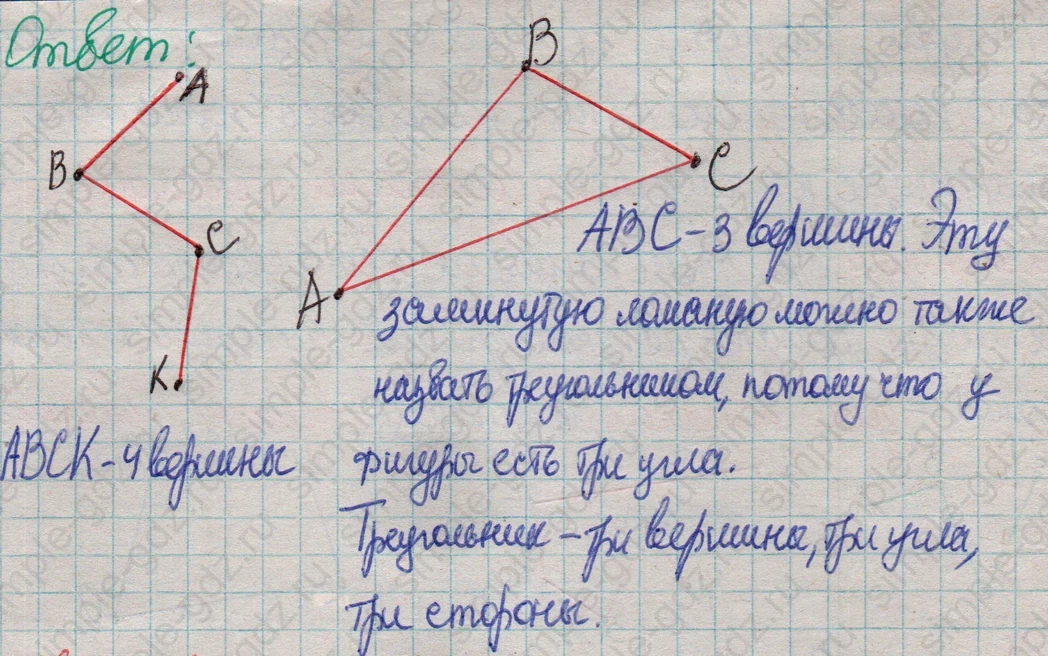 Ответ:
A
B
C
K
ABCK - 4 вершины
B
C
A
ABC - 3 вершины Эту
замкнутую ломаную можно также
назвать треугольником, потому что у
фигуры есть три угла.
Треугольник - три вершины, три угла,
три стороны.
simple-gdz.ru